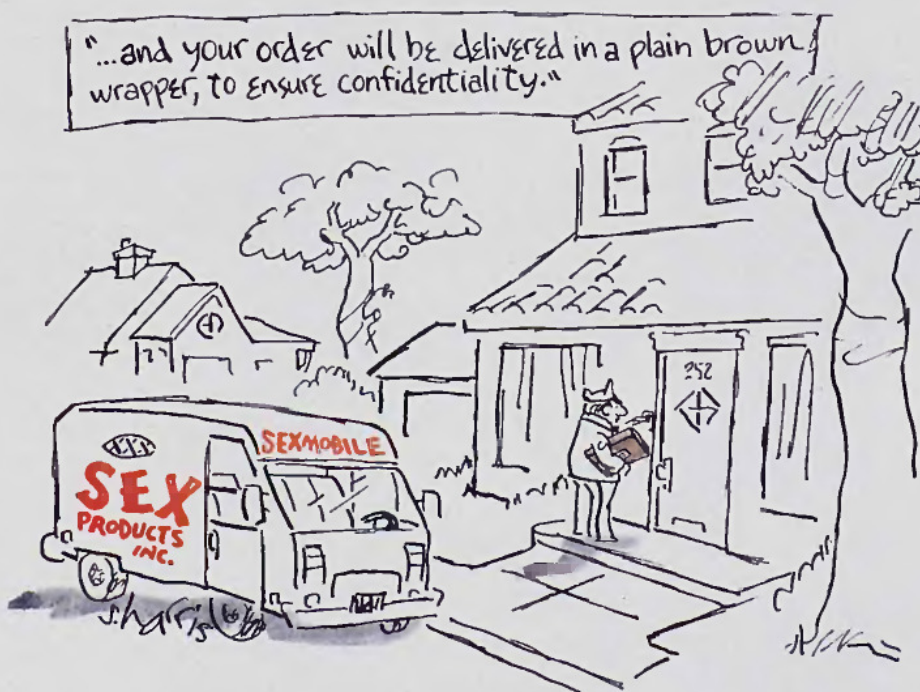 "...and your order will be delivered in a plain brown
wrapper, to ensure confidentiality."
SEXMOBILE
SEX
PRODUCTS
INC.
352
s.harris